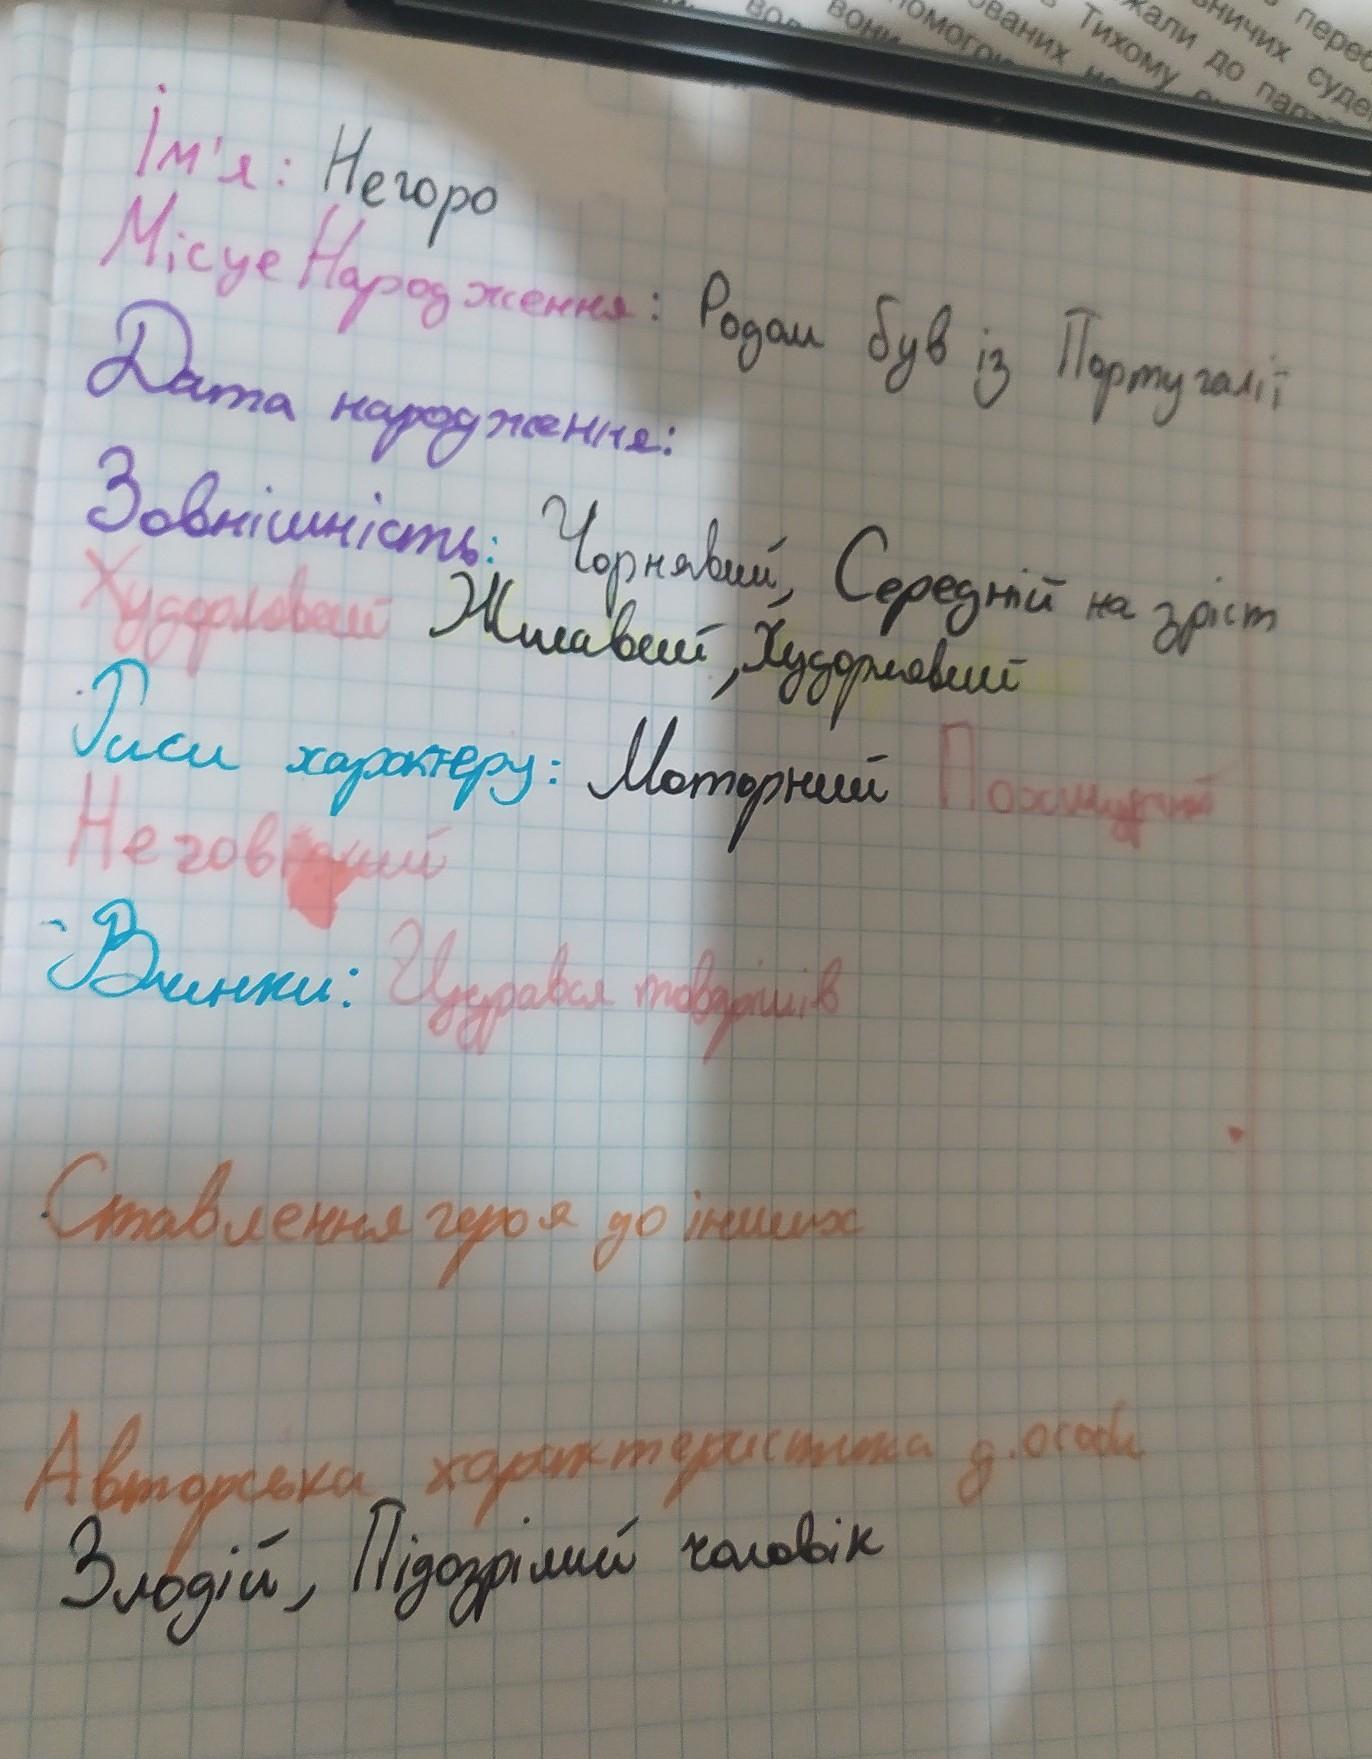 переб
вничих суде
жали до пар
Тихому
ованих
помогою
вони
Ім'я: Негоро
Місце Народження: Родом був із Португалії
Дата народження:
Зовнішність: Чорнявий, Середній на зріст
Худорлявий Жилавий, Худорлявий
Риси характеру: Моторний Похмурий
Неговіркий
Вчинки: Цурався товаришів
Ставлення героя до інших
Авторська характеристика д. особи
Злодій, Підозрілий чоловік